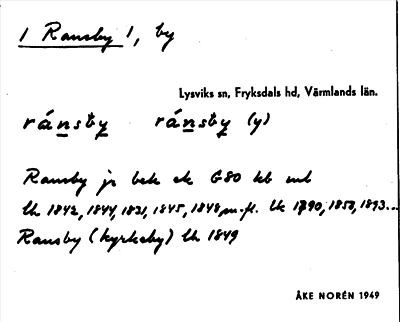 1 Ransby 1, by
Lysviks sn, Fryksdals hd, Värmlands län.
ránsby ránsby (y)
Ransby jr bek ek G80 kb ml
lk 1842, 1844, 1831, 1845, 1848, m.fl. lk 1890, 1853, 1893...
Ransby (kyrkeby) lk 1849
ÅKE NORÉN 1949